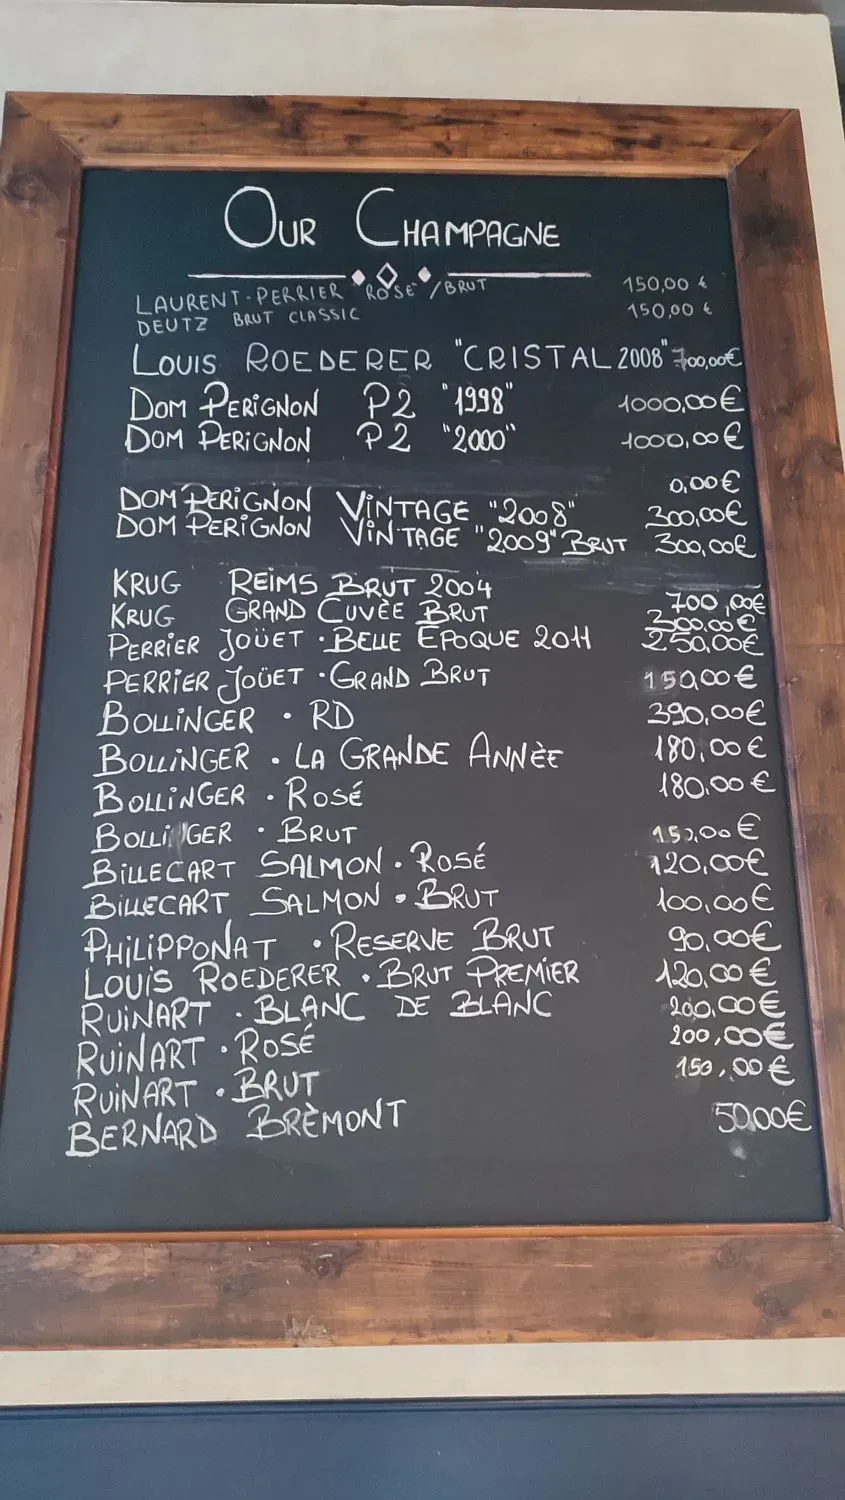 OUR CHAMPAGNE
LAURENT-PERRIER "ROSÉ"/BRUT 150,00 €
DEUTZ BRUT CLASSIC 150,00 €
LOUIS ROEDERER "CRISTAL 2008" 700,00€
DOM PERIGNON P2 "1998" 1000,00€
DOM PERIGNON P2 "2000" 1000,00€
0,00€
DOM PERIGNON VINTAGE "2008" 300,00€
DOM PERIGNON VINTAGE "2009" BRUT 300,00€
KRUG REIMS BRUT 2004 700,00€
KRUG GRAND CUVÈE BRUT 300,00€
PERRIER JOÜET · BELLE EPOQUE 2011 250,00€
PERRIER JOÜET · GRAND BRUT 150,00€
BOLLINGER · RD 390,00€
BOLLINGER · LA GRANDE ANNÈE 180,00€
BOLLINGER · ROSÉ 180,00€
BOLLINGER · BRUT 150,00€
BILLECART SALMON · ROSÉ 120,00€
BILLECART SALMON · BRUT 100,00€
PHILIPPONAT · RESERVE BRUT 90,00€
LOUIS ROEDERER · BRUT PREMIER 120,00€
RUINART · BLANC DE BLANC 200,00€
RUINART · ROSÉ 200,00€
RUINART · BRUT 150,00€
BERNARD BRÈMONT 50,00€